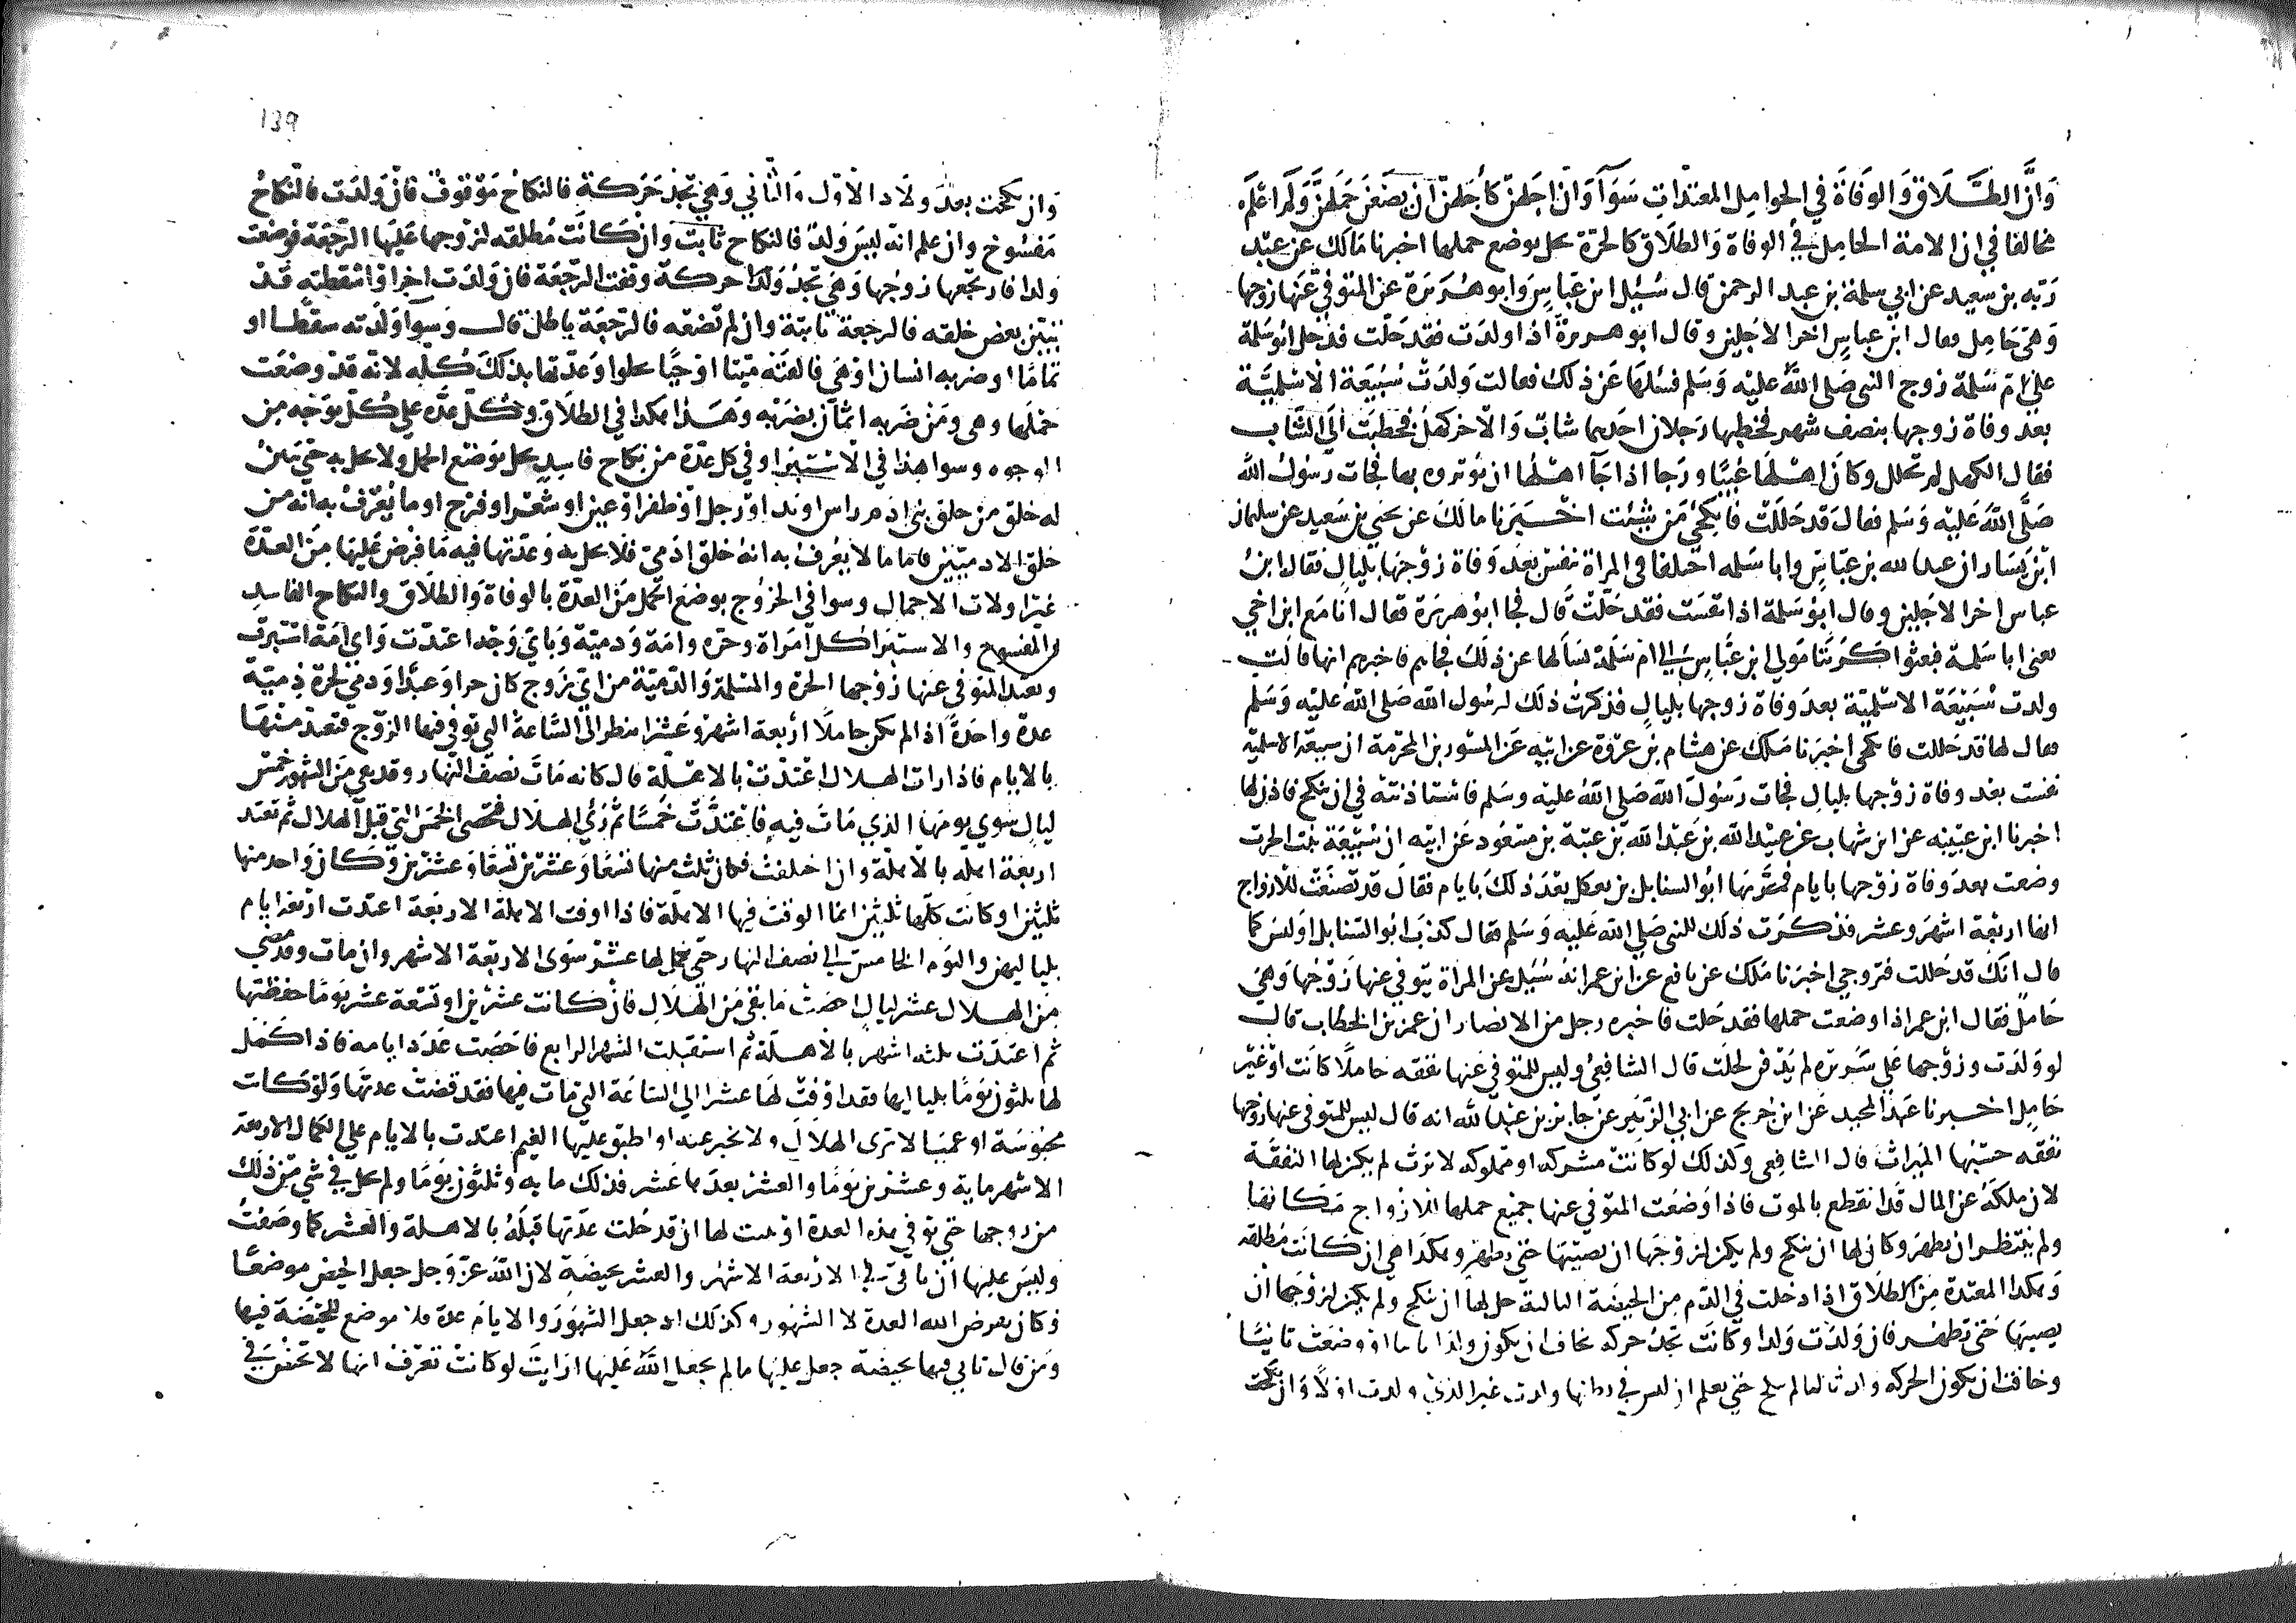 وان الطلاق والوفاة في الحوامل المعتدات سوآ وان اجلهن كلهن ان يضعن حملهن ولم اعلم
مخالفا في ان الامة الحامل في الوفاة والطلاق كالحرة تحل بوضع حملها اخبرنا مالك عن عبد
ربه بن سعيد عن ابي سلمة بن عبد الرحمن قال سئل ابن عباس وابو هريرة عن المتوفي عنها زوجها
وهي حامل فقال ابن عباس اخرا لاجلين وقال ابو هريرة اذا ولدت فقد حلت فدخل ابو سلمة
علي ام سلمة زوج النبي صلى الله عليه وسلم فسلها عن ذلك فقالت ولدت سبيعة الاسلمية
بعد وفاة زوجها بنصف شهر فخطبها رجلان احدهما شاب والاخر كهل فخطبت الي الشاب
فقال الكهل لم تحلل وكان اهلها غيبا ورجا اذا جآ اهلها ان يوثروه بها فجات رسول الله
صلى الله عليه وسلم فقال قد حللت فانكحي من شئت اخبرنا مالك عن يحيى بن سعيد عن سليمان
ابن يسار ان عبد الله بن عباس وابا سلمه اختلفا في المراة تنفس بعد وفاة زوجها بليال فقال ابن
عباس اخرا لاجلين وقال ابو سلمة اذا نفست فقد حلت قال فجا ابو هريرة فقال انا مع ابن اخي
يعني ابا سلمة فبعثوا كريبا مولي ابن عباس الي ام سلمة يسالها عن ذلك فجاهم فاخبرهم انها قالت
ولدت سبيعة الاسلمية بعد وفاة زوجها بليال فذكرت ذلك لرسول الله صلى الله عليه وسلم
فقال لها قد حللت فانكحي اخبرنا ملك عن هشام بن عروة عن ابيه عن المسور بن المخرمة ان سبيعة الاسلمية
نفست بعد وفاة زوجها بليال فجات رسول الله صلى الله عليه وسلم فاستاذنته في ان تنكح فاذن لها
اخبرنا ابن عيينه عن ابن شهاب عن عبيد الله بن عبد الله بن عتبة بن مسعود عن ابيه ان سبيعة بنت الحرث
وضعت بعد وفاة زوجها بايام فمر بها ابو السنابل بن بعكك بعد ذلك بايام فقال قد تصنعت للازواج
انها اربعة اشهر وعشر فذكرت ذلك للنبي صلى الله عليه وسلم فقال كذب ابو السنابل او ليس كما
قال انك قد حللت فتزوجي اخبرنا ملك عن نافع عن ابن عمر انه سئل عن المراة يتوفي عنها زوجها وهي
حامل فقال ابن عمر اذا وضعت حملها فقد حلت فاخبره رجل من الانصار ان عمر بن الخطاب قال
لو ولدت وزوجها علي سريره لم يدفن لحلت قال الشافعي وليس للمتوفي عنها نفقه حاملا كانت او غير
حامل اخبرنا عبد المجيد عن ابن جريج عن ابي الزبير عن جابر بن عبد الله انه قال ليس للمتوفى عنها زوجها
نفقه حسبها الميراث قال الشافعي وكذلك لو كانت مشركه او مملوكه لا ترث لم يكن لها النفقة
لان ملكه عن المال قد انقطع بالموت فاذا وضعت المتوفي عنها جميع حملها للازواج مكانها
ولم ينتظر ان تطهر وكان لها ان تنكح ولم يكن لزوجها ان يصيبها حتى تطهر وهكذا هي ان كانت مطلقه
وهكذا المعتدة من الطلاق اذا دخلت في الدم من الحيضة الثالثة حل لها ان تنكح ولم يكن لزوجها ان
يصيبها حتى تطهر فان ولدت ولدا وكانت تجد حركه تخاف ان يكون ولدا ثانيا او وضعت ثانيا
وخافت ان تكون الحركه ولد ثالثا لم تنكح حتى يعلم ان ليس في بطنها ولد غير الذي ولدت اولا وان نكحت
وان نكحت بعد ولاد الاول والثاني وهي تجد حركة فالنكاح موقوف فان ولدت فالنكاح
مفسوخ وان علم انه ليس ولد فالنكاح ثابت وان كانت مطلقه لزوجها عليها الرجعة فوضعت
ولدا فارتجعها زوجها وهي تجد ولدا حركة وقفت الرجعة فان ولدت اخر او اسقطته قد
تبين بعض خلقه فالرجعة ثابتة وان لم تضعه فالرجعة باطلة قال وسوا ولدته سقطا او
تماما او ضربه انسان او هي فالقته ميتا او حيا تحلوا وعدتها بذلك كله لانه قد وضعت
حملها وهي ومن ضربه اثمان بضربه وهذا هكذا في الطلاق وكل عده علي كل بوجه من
الوجوه وسوا هذا في الاستبرا وفي كل عدة من نكاح فاسد تحل بوضع الحمل ولا تحل به حتى يبين
له خلق من خلق بني ادم راس او يد او رجل او ظفر او عين او شعر او فرج او ما يعرف به انه من
خلق الادميين فاما ما لا يعرف به انه خلق ادمي فلا تحل به وعدتها فيه ما فرض عليها من العدة
غير اولات الاحمال وسوا في الخروج بوضع الحمل من العدة بالوفاة والطلاق والنكاح الفاسد
والمفسوخ والاستبرا كل امراة وحره وامة وذمية وباي وجه اعتدت واي امة استبرت
وتعتد المتوفى عنها زوجها الحرة والمسلمة والذمية من اي زوج كان حرا وعبدا وذمي لحرة ذمية
عدة واحدة اذا لم تكن حاملا اربعة اشهر وعشرا ينظر الى الساعة التي توفي فيها الزوج فتعتد منها
بالايام فاذا رات الهلال اعتدت بالاهلة قال كانه مات نصف النهار وقد بقي من الشهر خمس
ليال سوي يومها الذي مات فيه فاعتدت خمسا ثم رئي الهلال فتحصى الخمس التي قبل الهلال ثم تعتد
اربعة اهله بالاهلة وان اختلفت فكان ثلث منها تسعا وعشرين تسعا وعشرين وكان واحد منها
ثلثين او كانت كلها ثلثين انما الوقت فيها الاهلة فاذا اوفت الاهلة الاربعة اعتدت اربعة ايام
بلياليهن واليوم الخامس الى نصف النهار حتى يكمل لها عشر سوى الاربعة الاشهر وان مات وقد مضى
من الهلال عشر ليال احصت ما بقي من الهلال فان كانت عشرين او تسعة عشر يوما حفظتها
ثم اعتدت ثلثه اشهر بالاهلة ثم استقبلت الشهر الرابع فاحصت عدد ايامه فاذا اكمل
لها ثلثون يوما بلياليها فقد اوفت لها عشرا الي الساعة التي مات فيها فقد قضت عدتها ولو كانت
محبوسة او عميا لا ترى الهلال ولا تخبر عنه او اطبق عليها الغيم اعتدت بالايام علي الكمال الاربعة
الاشهر ماية وعشرين يوما والعشر بعدها عشر فذلك مايه وثلثون يوما ولم تحل في شي من ذلك
من زوجها حتى توفي هذه العدة او يثبت لها ان قد خلت عدتها قبله بالاهلة والعشر كما وصفت
وليس عليها ان تاتي في الاربعة الاشهر والعشر بحيضة لان الله عز وجل جعل الحيض موضعا
فكان بفرض الله العدة لا الشهور وكذلك اذ جعل الشهور والايام عدة فلا موضع للحيضة فيها
ومن قال تاتي فيها بحيضة جعل عليها ما لم يجعل الله عليها ارايت لو كانت تعرف انها لا تحيض في
139